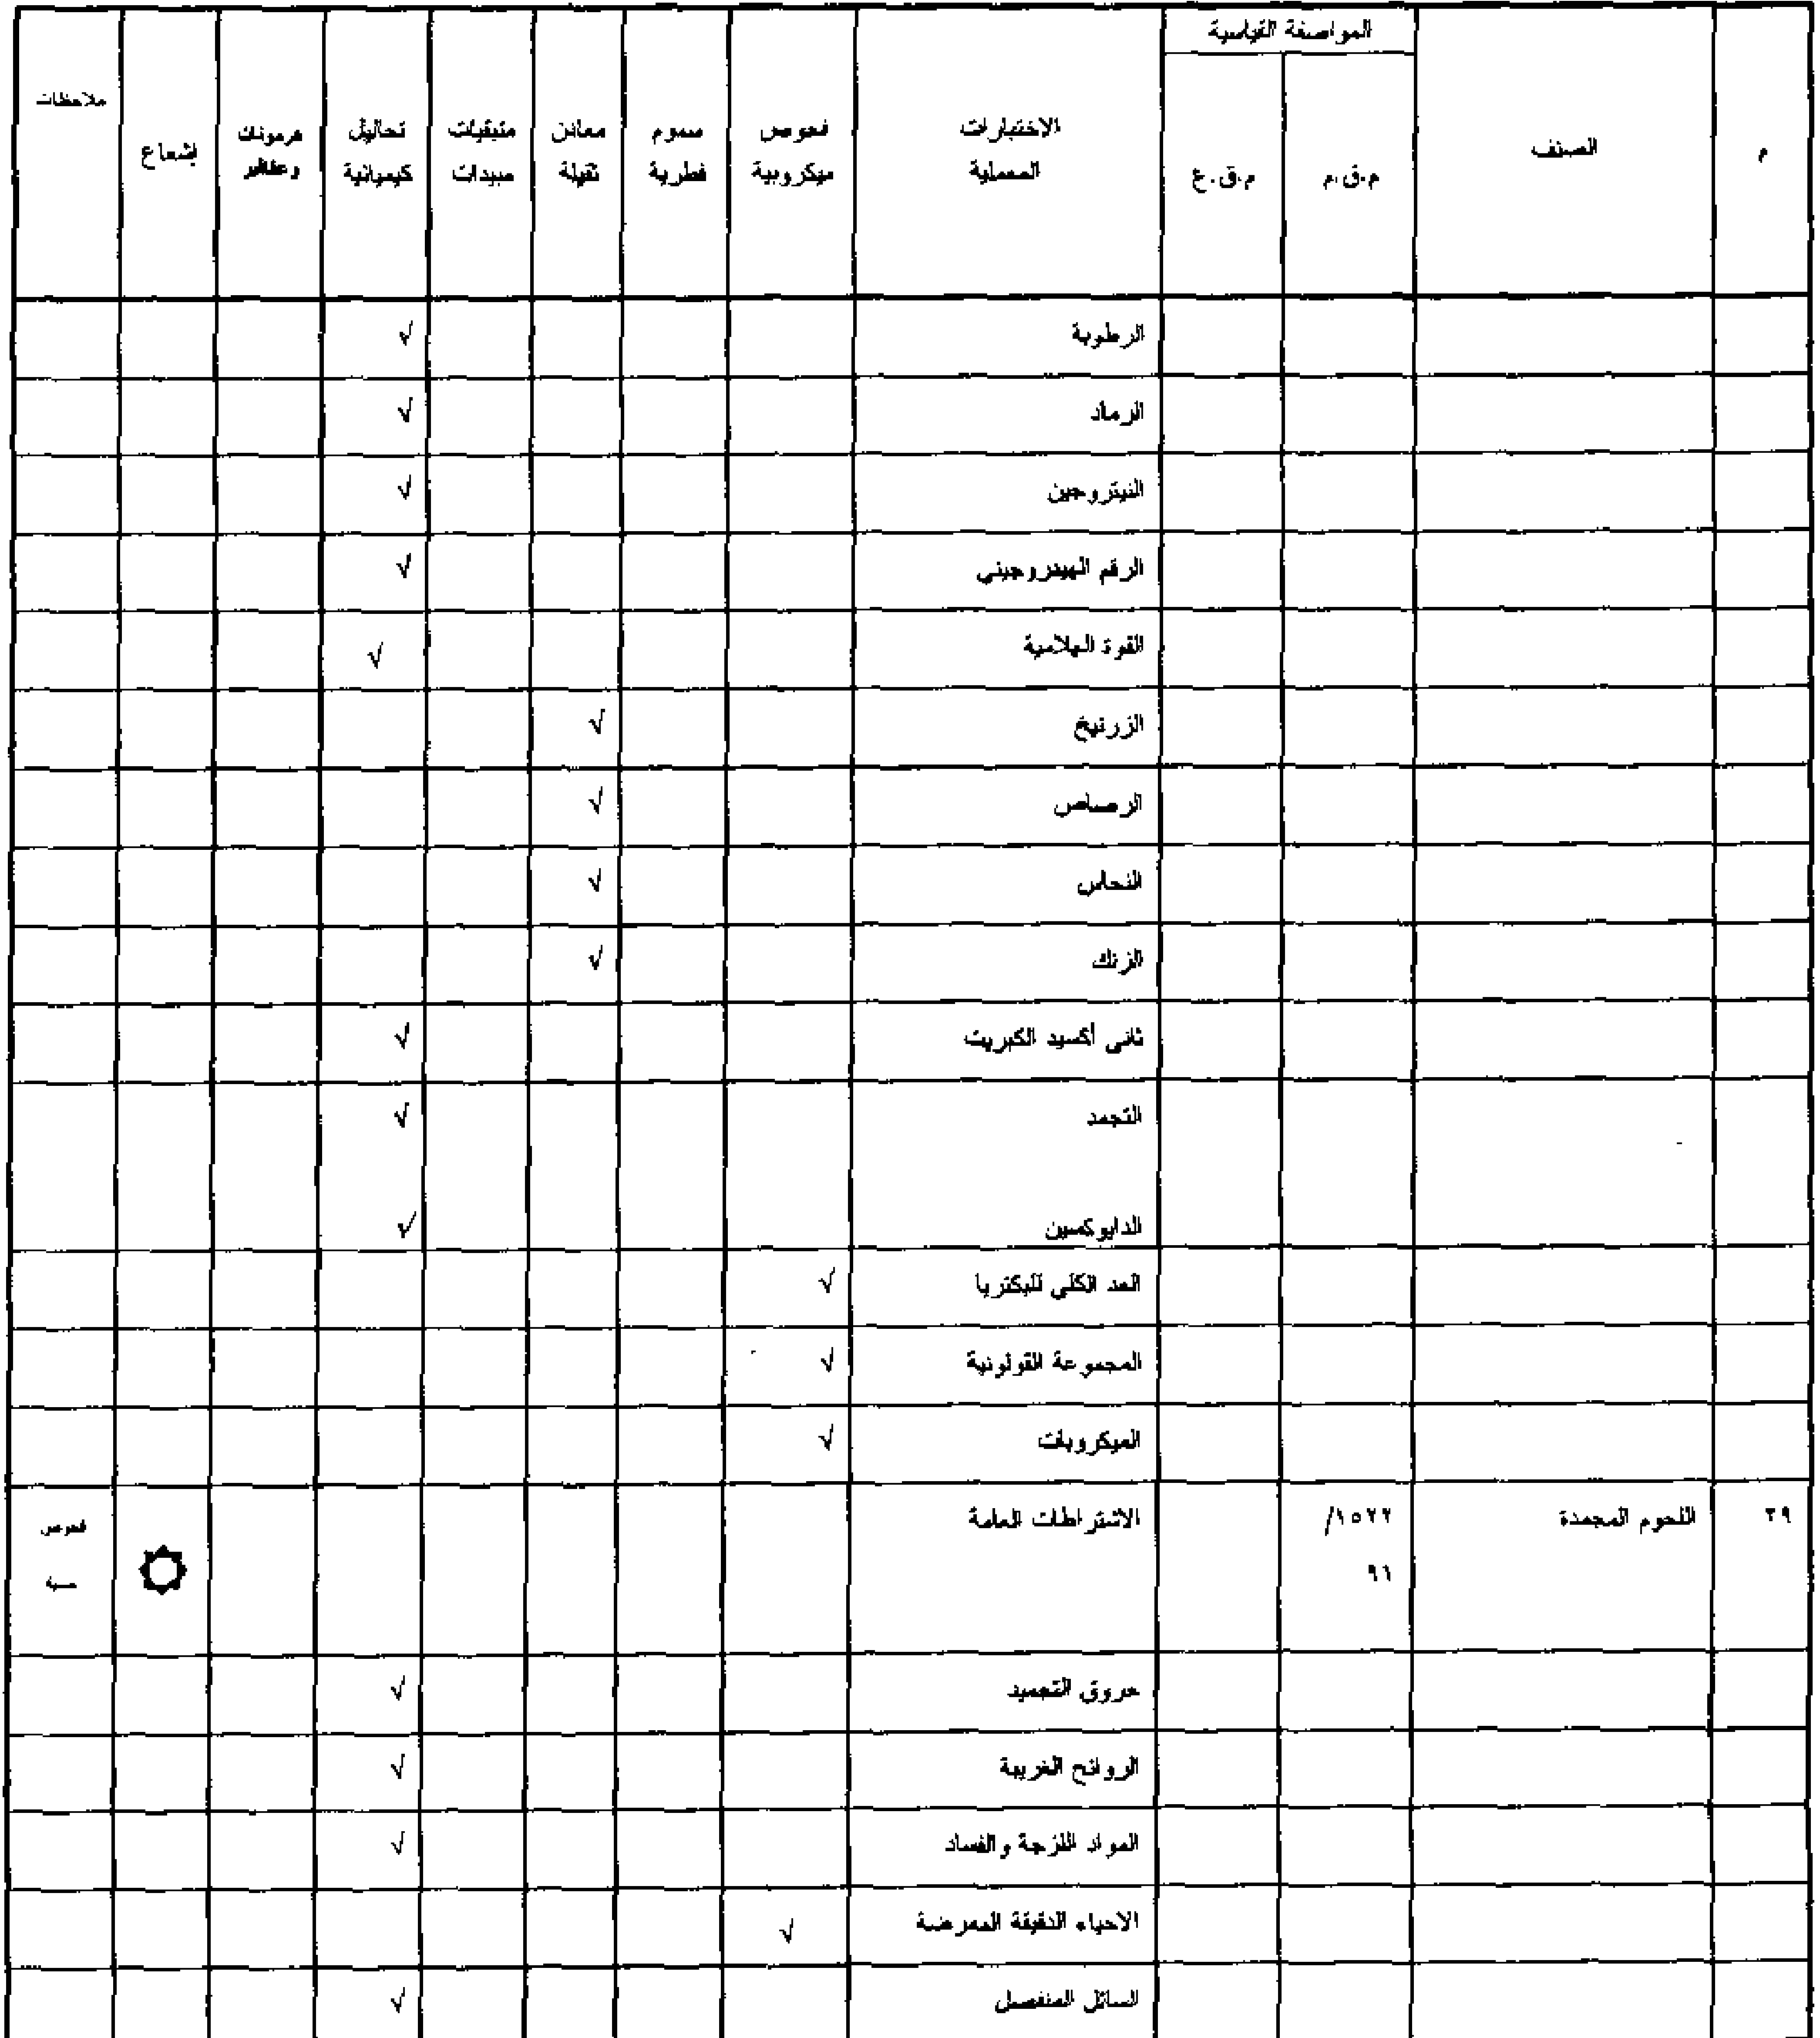 م	الصنف	المواصفة القياسية	م.ق.م	م.ق.ع	الاختبارات المعملية	فحوص ميكروبية	سموم فطرية	معادن ثقيلة	متبقيات مبيدات	تحاليل كيميائية	هرمونات وعقاقير	إشعاع	ملاحظات
الرطوبة √
الرماد √
النيتروجين √
الرقم الهيدروجيني √
القوة الهلامية √
الزرنيخ √
الرصاص √
النحاس √
الزنك √
ثانى أكسيد الكبريت √
التجمد √
الدايوكسين √
العد الكلي للبكتريا √
المجموعة القولونية √
الميكروبات √
٢٩ اللحوم المجمدة ١٥٢٢/ الاشتراطات العامة فحوص
٩١ حسية
حروق التجميد √
الروائح الغريبة √
المواد اللزجة والفساد √
الاحياء الدقيقة الممرضة √
السائل المنفصل √